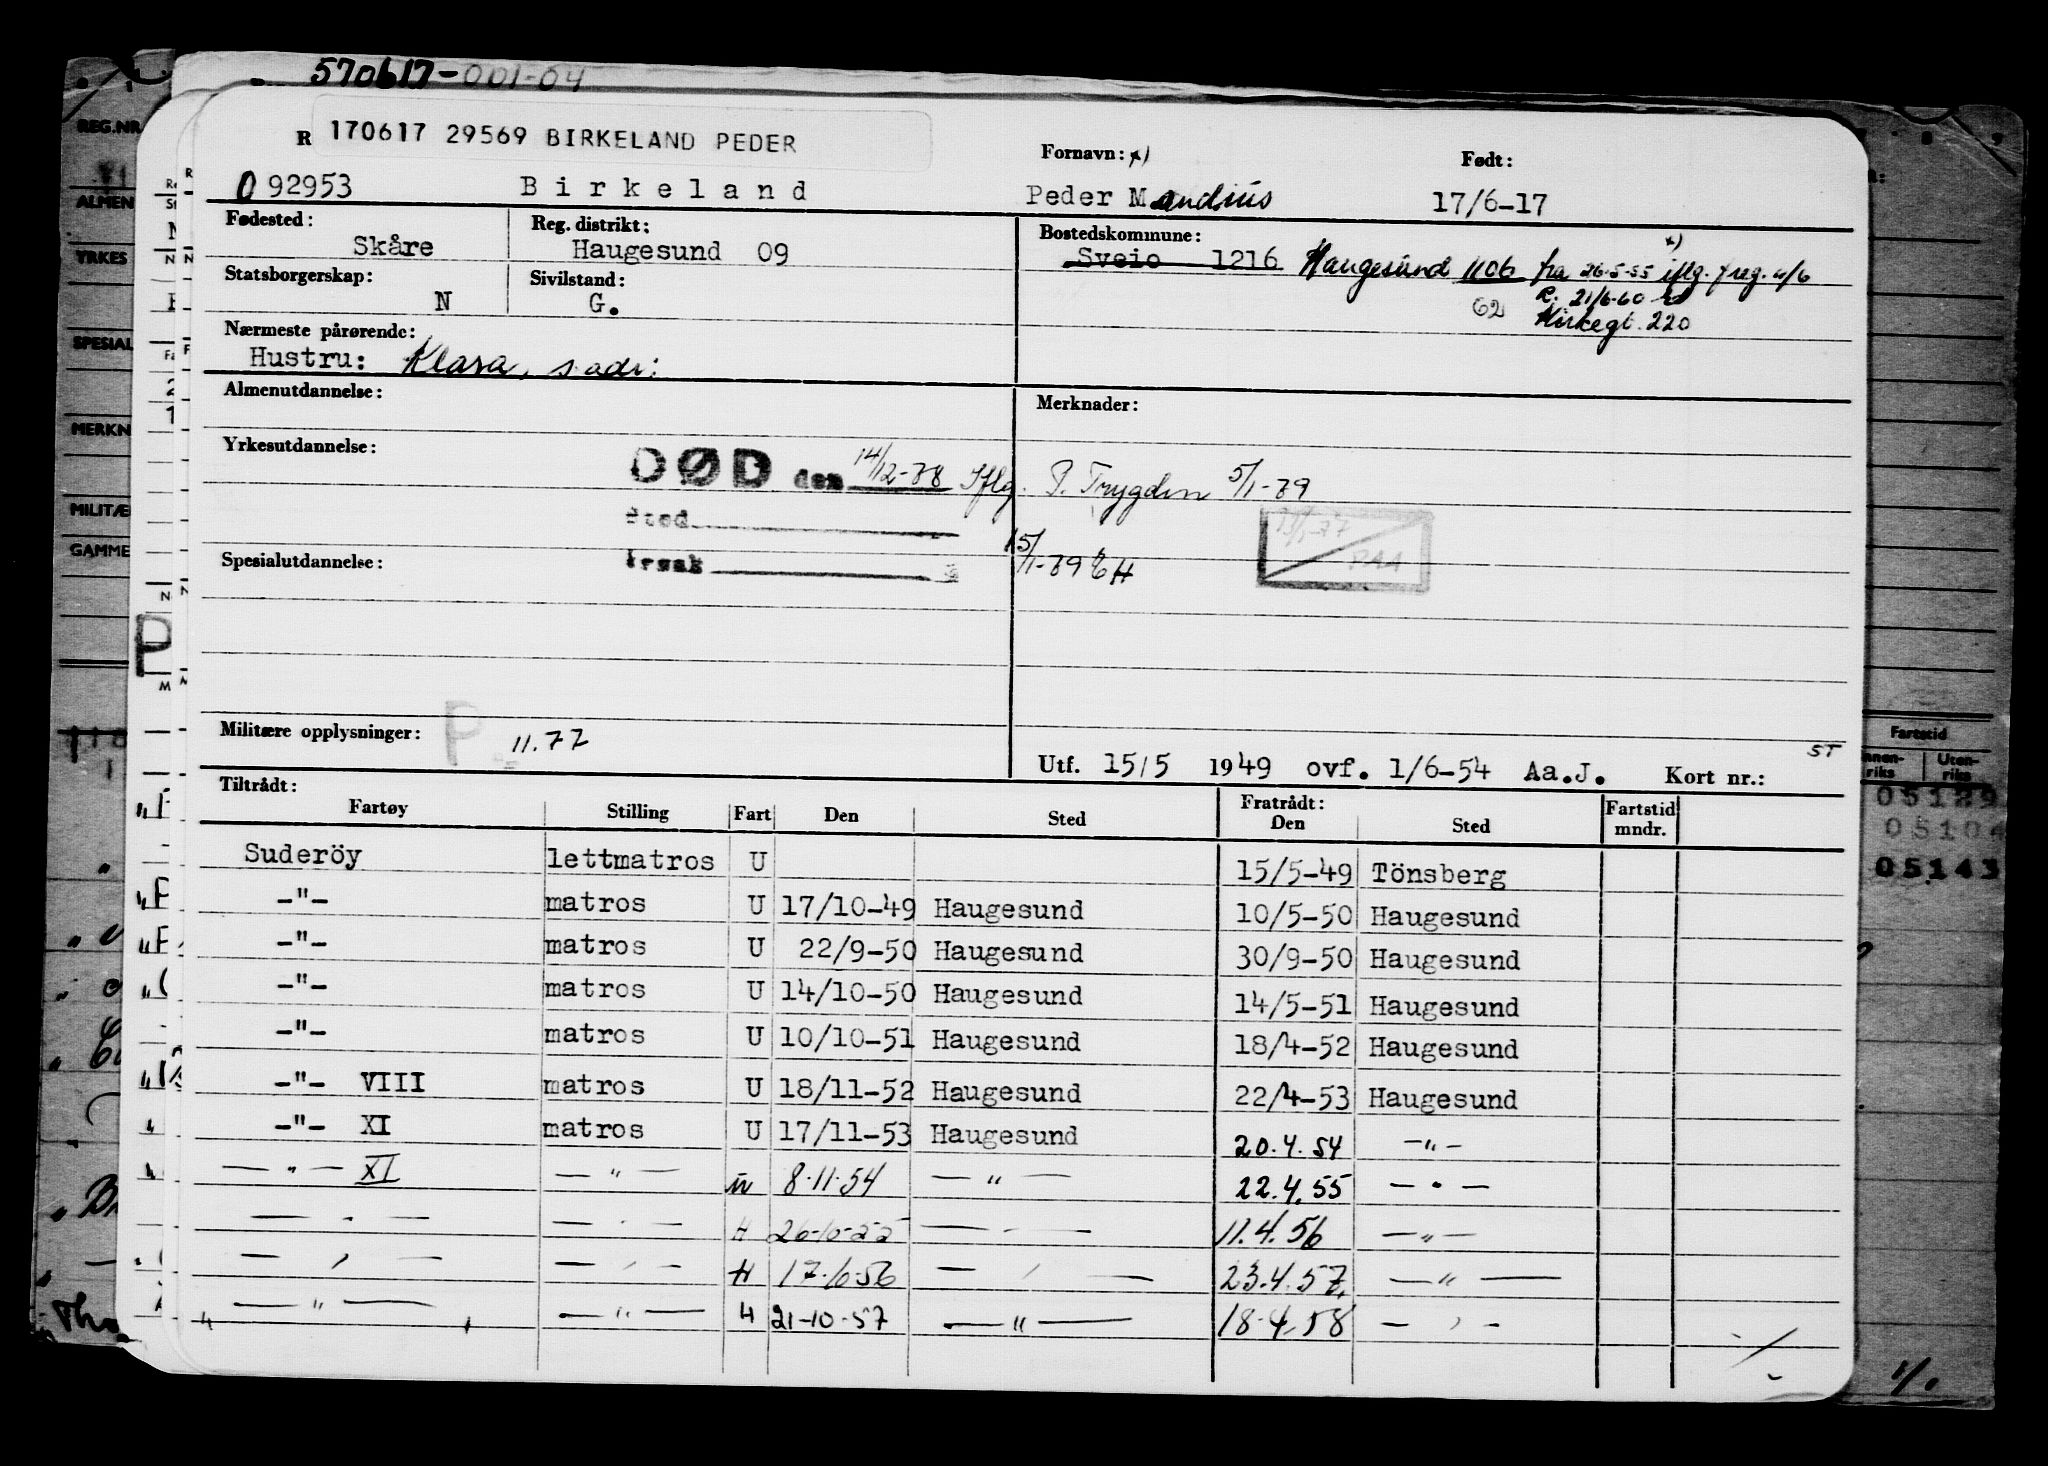 570617-001-04
R 170617 29569 BIRKELAND PEDER
Fornavn: x) Født:
092953 Birkeland Peder Mandius 17/6-17
Fødested: Reg. distrikt: Bostedskommune:
Skåre Haugesund 09 Sveio 1216 Haugesund 1106 fra 26-5-55 iflg. f reg. 4/6
x)
Statsborgerskap: Sivilstand:
N G. 62 R. 21/6-60
Kirkegt. 220
Nærmeste pårørende:
Hustru: Klara, s adr:
Almenutdannelse: Merknader:
Yrkesutdannelse:
DØD den 14/12-78 Iflg. P. Trygden 5/1-79
Sted
Spesialutdannelse: Årsak 15/1-79 EH
RAA
P
Militære opplysninger: P 11.77
Utf. 15/5 1949 ovf. 1/6-54 Aa.J. Kort nr.: 5T
Tiltrådt: Fratrådt:
Fartøy Stilling Fart Den Sted Den Sted Fartstid mndr.
Suderöy lettmatros U 15/5-49 Tönsberg
-"- matros U 17/10-49 Haugesund 10/5-50 Haugesund
-"- matros U 22/9-50 Haugesund 30/9-50 Haugesund
-"- matros U 14/10-50 Haugesund 14/5-51 Haugesund
-"- matros U 10/10-51 Haugesund 18/4-52 Haugesund
-"- VIII matros U 18/11-52 Haugesund 22/4-53 Haugesund
-"- XI matros U 17/11-53 Haugesund 20.4.54 -"-
-"- XI -"- u 8.11.54 -"- 22.4.55 -"-
-"- -"- H 26-10-55 -"- 11.4.56 -"-
-"- -"- H 17.10.56 -"- 23.4.57. -"-
-"- -"- H 21-10-57 -"- 18.4.58 -"-
REG.NR
ALMEN
YRKES
SPESIAL
MERKN
MILITÆ
GAMME
Fartstid
Innen-riks Uten-riks
05129
05104
05143